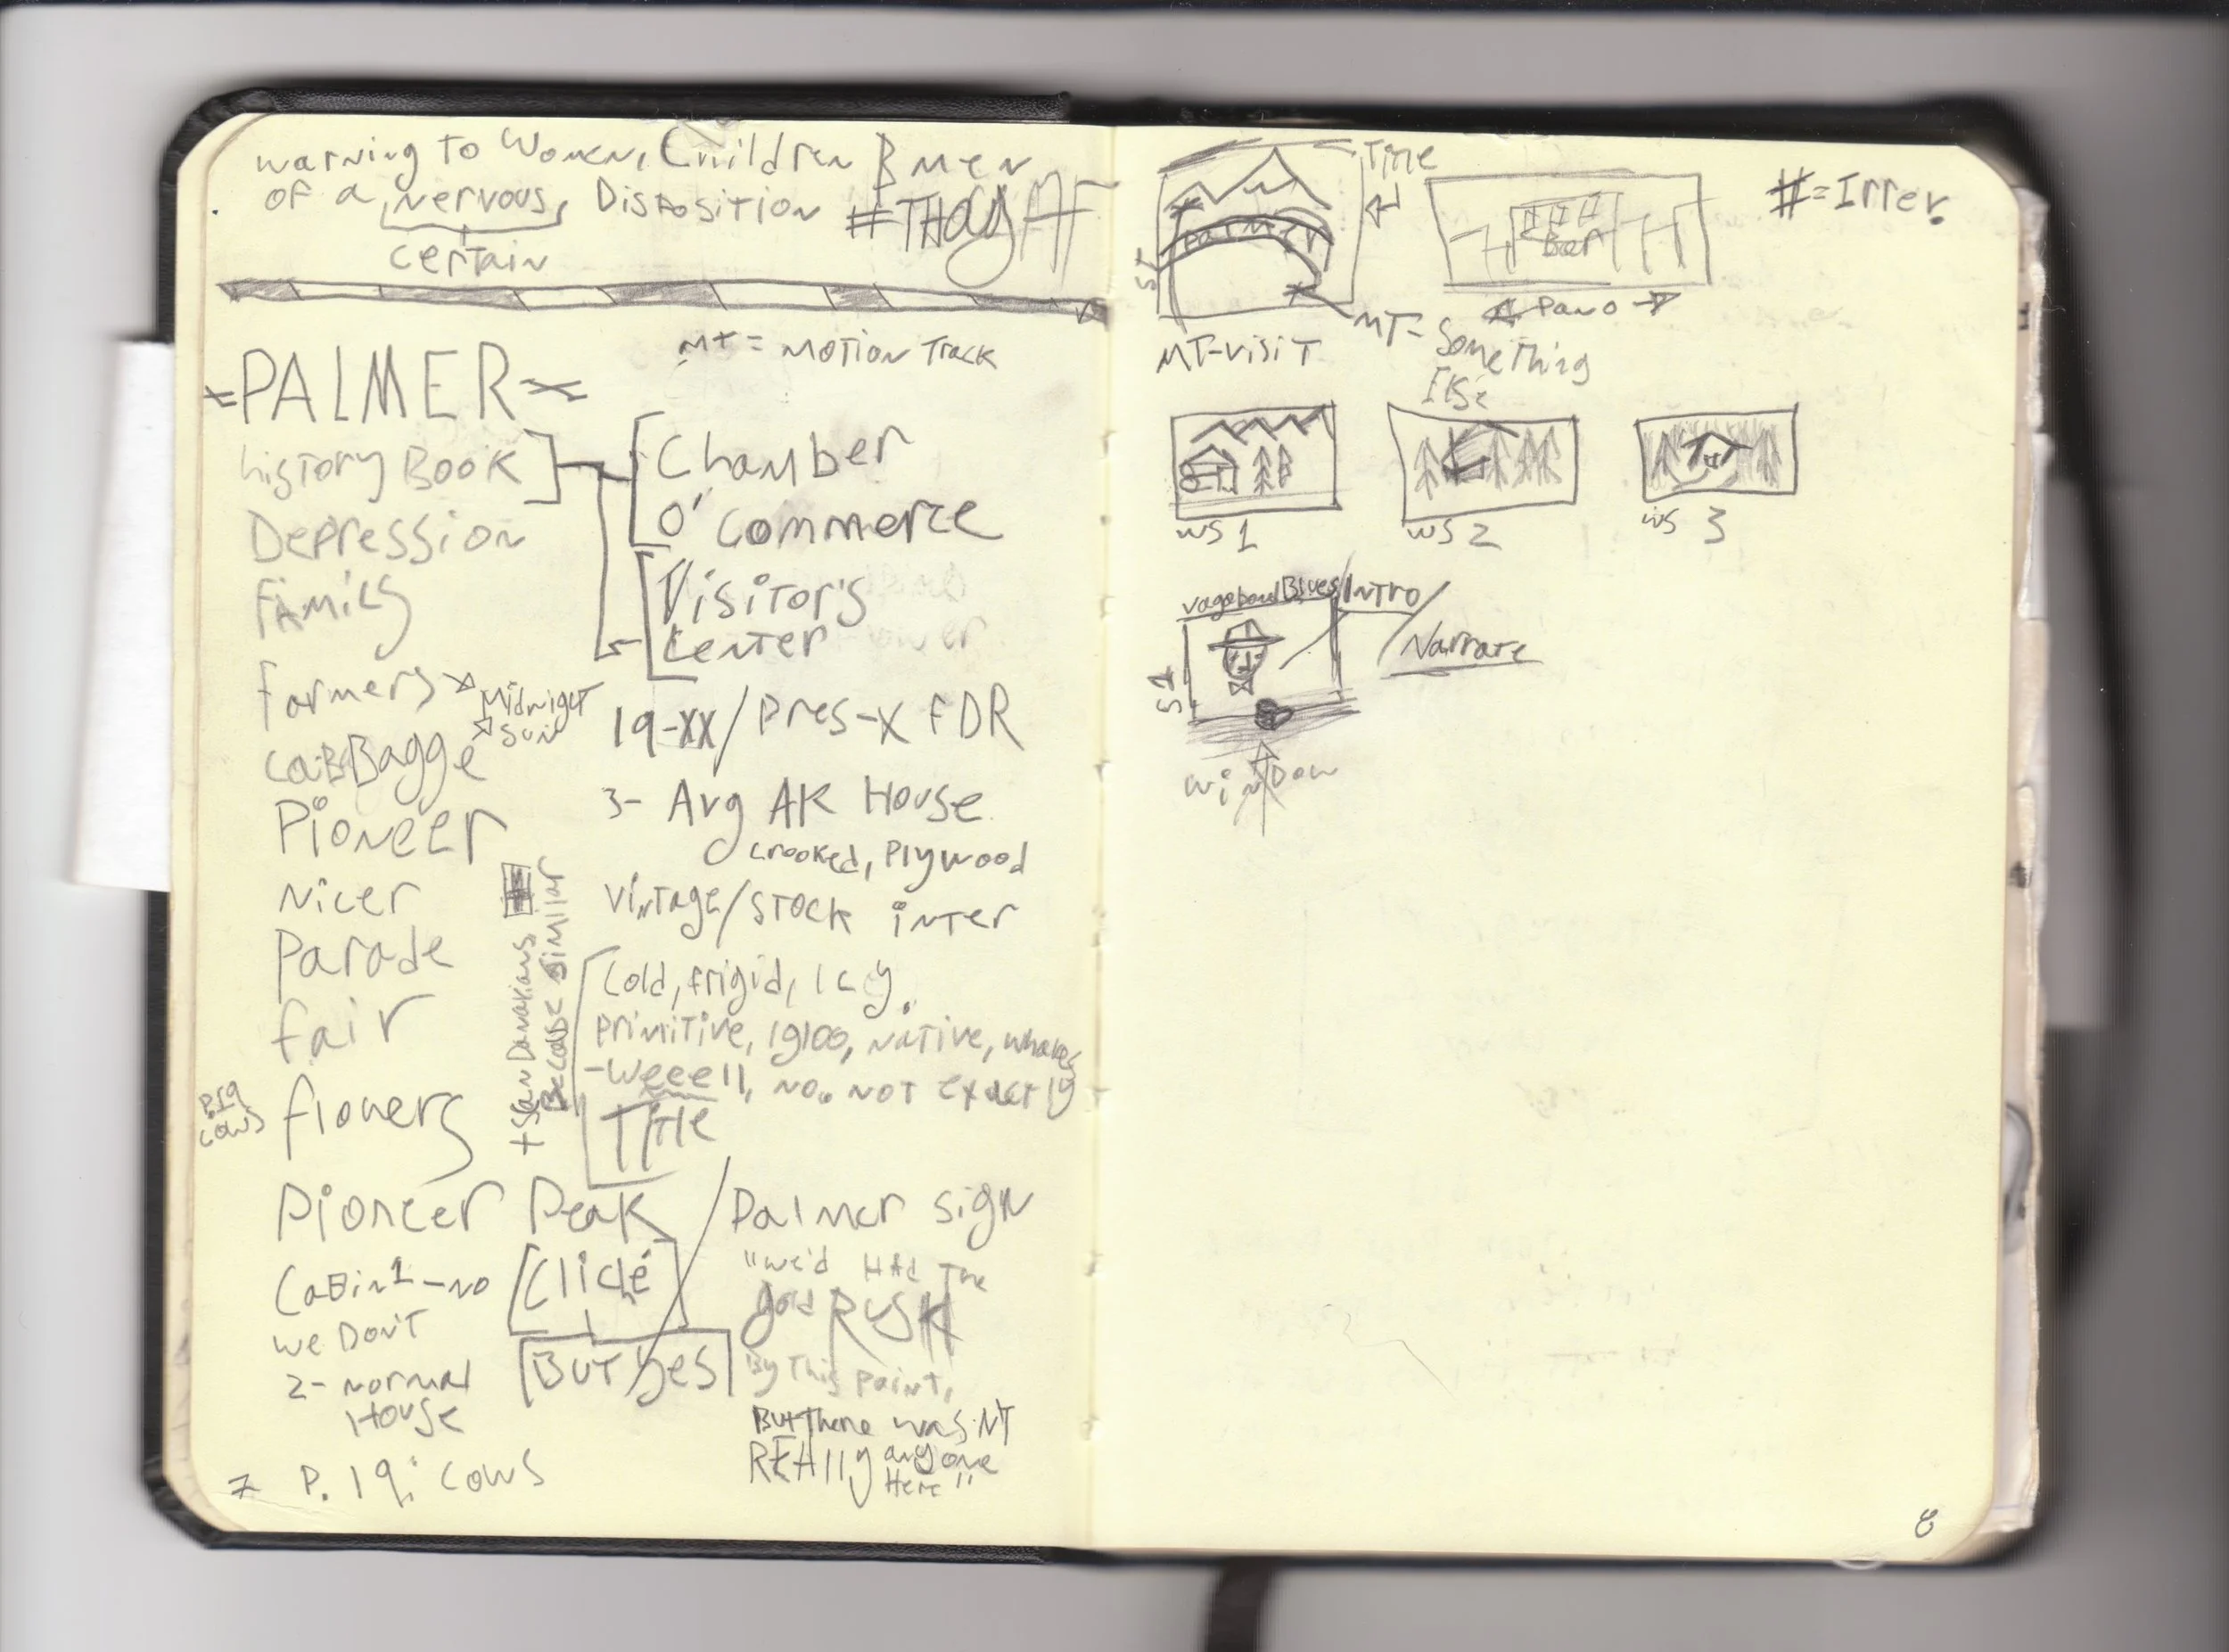 warning to Women, Children & men
of a nervous, Disposition #THUgAF
certain
MT = MOTION Track
=PALMER=
history Book
Chamber
O' Commerce
Depression
Visitor's
Center
Family
Farmers
Midnight
Sun
CaBBagge
19-XX/Pres-X FDR
Pioneer
3- Avg AK House
crooked, Plywood
Nicer
Vintage/STOCK inter
Parade
Fair
Because Similar
Cold, frigid, Icy.
Primitive, Igloo, Native, Whales
-Weeell, no. NOT exactly
Title
P.19
cows
flowers
Pioneer Peak / Palmer sign
CaBin1-NO
we Don't
[Cliché]
[BUT yes]
2- normal
House
"We'd HAd The
gold RUSH
By This Point,
But There wasNT
REAlly anyone
Here"
7 P. 19: cows
Time
PALMER
#=Irrer.
Pano
MT-visiT
MT- Something
Else
WS 1
WS 2
WS 3
Vagabond Blues/Intro/
Narrate
S1
window
8